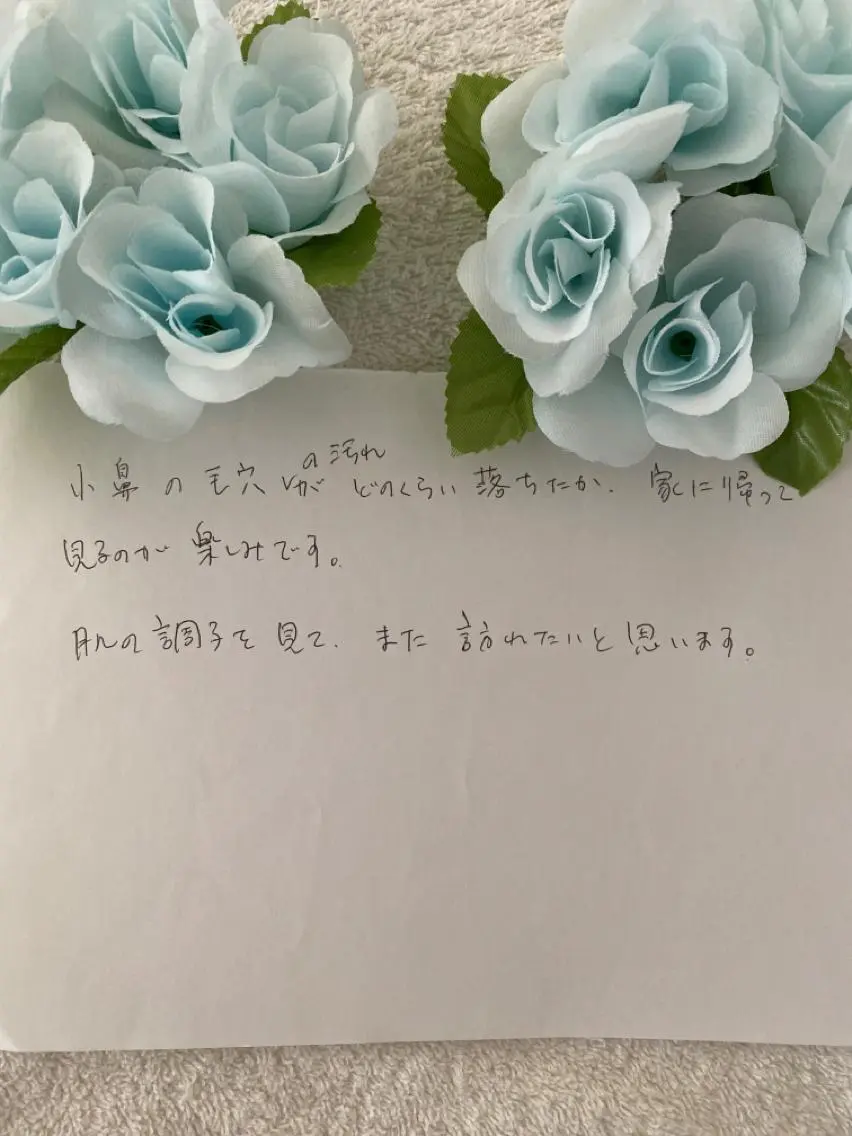 小鼻の毛穴の汚れがどのくらい落ちたか、家に帰って
見るのが楽しみです。
肌の調子を見て、また訪れたいと思います。